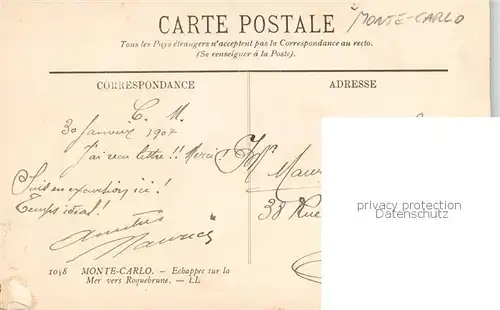 CARTE POSTALE
MONTE-CARLO
Tous les Pays étrangers n'acceptent pas la Correspondance au recto.
(Se renseigner à la Poste).
CORRESPONDANCE
ADRESSE
C. M.
30 Janvier 1907
J'ai reçu lettre!! Merci!
Suis en excursion ici!
Temps idéal!
Amitiés
Maurice
M. Maur
38 Rue
privacy protection
Datenschutz.
1058 MONTE-CARLO. - Echappee sur la
Mer vers Roquebrune. - LL